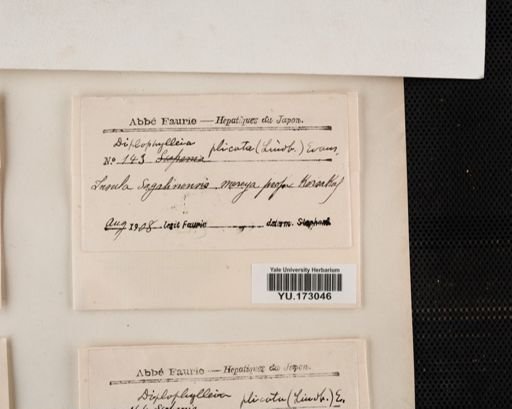 Abbé Faurie — Hepatiques du Japon.
Diplophylleia plicata (Lindb.) Evans,
No 143
Insula Sagalinensis mereya prope Korsakof
Aug 1908 legit Faurie determ. Stephani
Yale University Herbarium
YU.173046
Abbé Faurie — Hepatiques du Japon.
Diplophylleia plicata (Lindb.) E.